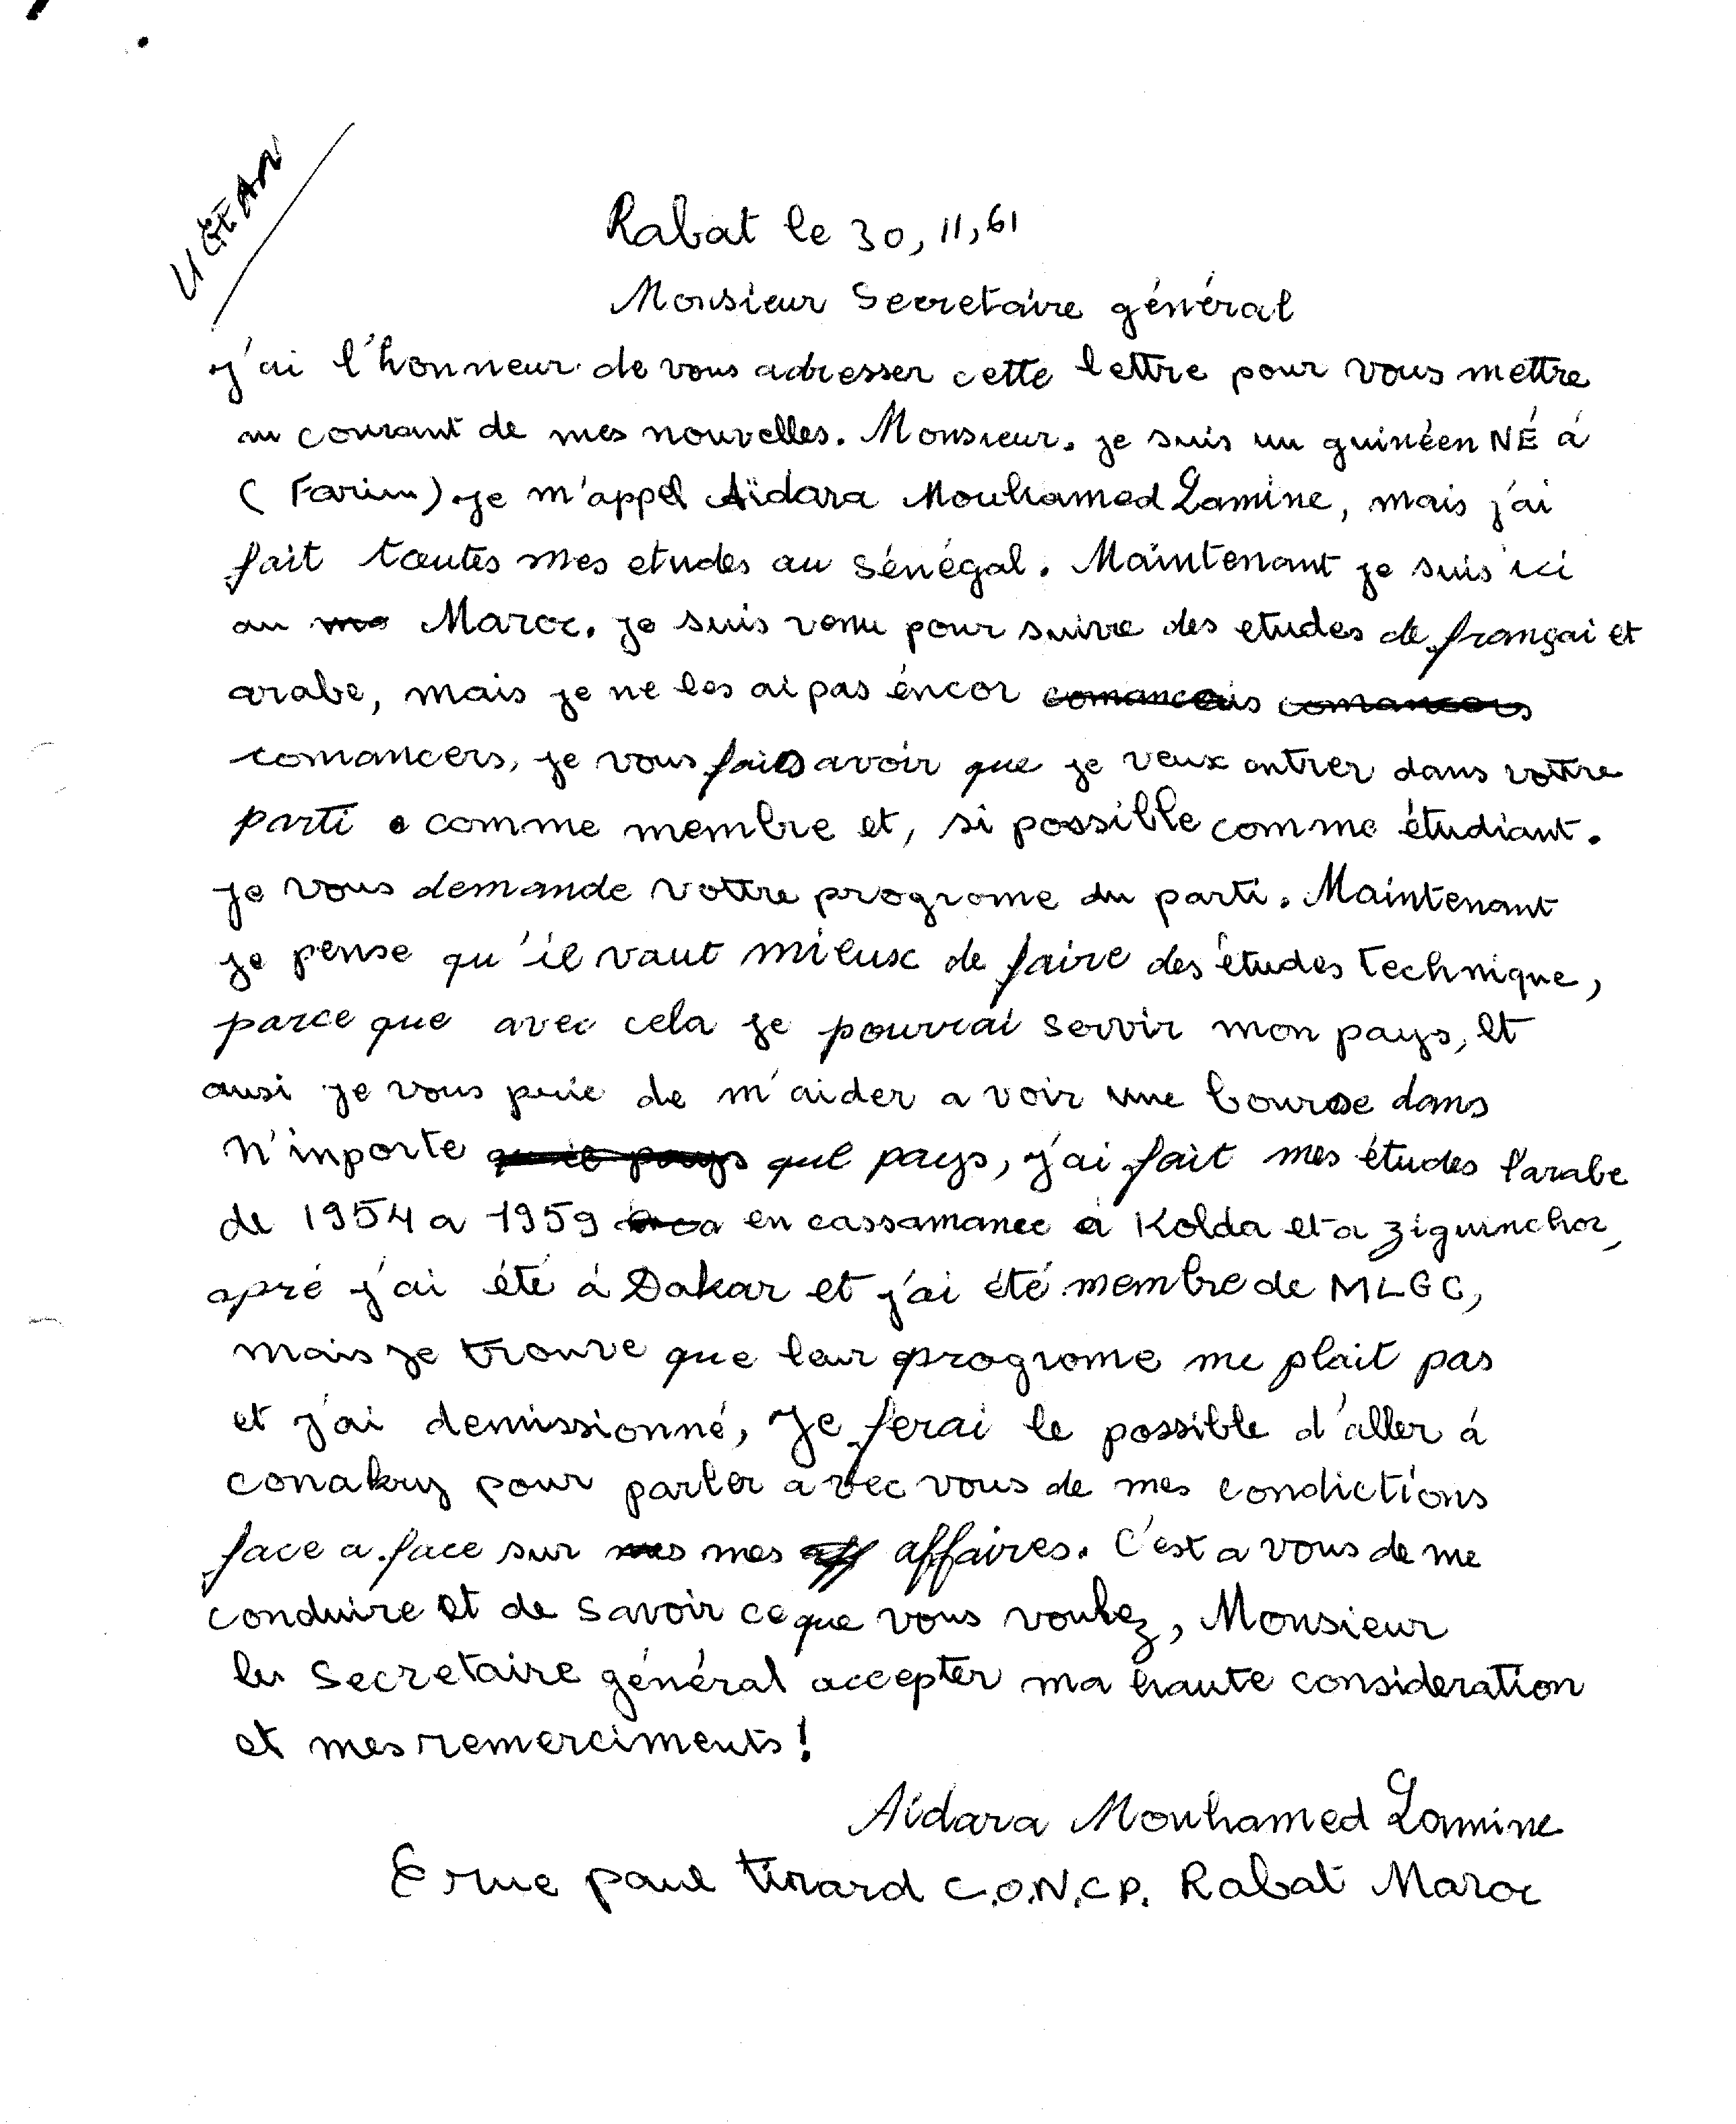 UGEAN
Rabat le 30, 11, 61
Monsieur Secretaire général
j'ai l'honneur de vous adresser cette lettre pour vous mettre
au courant de mes nouvelles. Monsieur. je suis un guinéen NÉ á
( Farim) je m'appel Aïdara Mouhamed Lamine, mais j'ai
fait toutes mes etudes au Sénégal. Maintenant je suis ici
au Maroc. je suis venu pour suivre des etudes de françai et
arabe, mais je ne les ai pas éncor comancais comancers
comancers, je vous fais avoir que je veux entrer dans vottre
parti comme membre et, si possible comme étudiant.
je vous demande vottre progrome du parti. Maintenant
je pense qu'il vaut mieux de faire des études technique,
parce que avec cela je pourrai servir mon pays, et
ausi je vous prie de m'aider a voir une bourse dans
N'inporte quil pays quel pays, j'ai fait mes études l'arabe
de 1954 a 1959 en cassamance a Kolda et a ziguinchor,
apré j'ai été á Dakar et j'ai été membre de MLGC,
mais je trouve que leur progrome me plait pas
et j'ai demissionné, Je ferai le possible d'aller á
conakry pour parler avec vous de mes condictions
face a face sur mes mes aff affaires. C'est a vous de me
conduire et de savoir ce que vous voulez, Monsieur
le Secretaire général accepter ma haute consideration
et mes remerciments!
Aidara Mouhamed Lamine
rue paul tirard C.O.N.C.P. Rabat Maroc